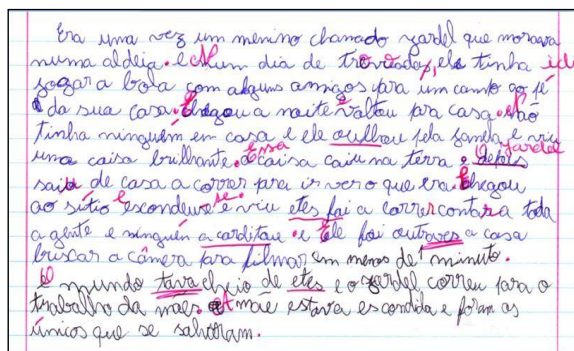 Era uma vez um menino chamado yardel que morava
numa aldeia. e Num dia de trovoada, ele tinha ido
jogar a bola com alguns amigos para um campo ao pé
da sua casa. Chegou a noite e valtou pra casa. Não
tinha ninguém em casa e ele oulhou pela janela e viu
uma caisa brilhante. Essa caisa caiu na terra e depis o yardel
saiu de casa a correr pra ir ver o que era. Chegou
ao sítio e escondeuse se e viu etes foi a correr contar a toda
a gente e ninguén a carditou. e Ele foi outraves a casa
buscar a câmera pra filmar em menos de 1 minuto.
O mundo tava cheio de etes e o yardel correu para o
trabalho da mães. A mãe estava escondida e foram os
únicos que se salvaram.